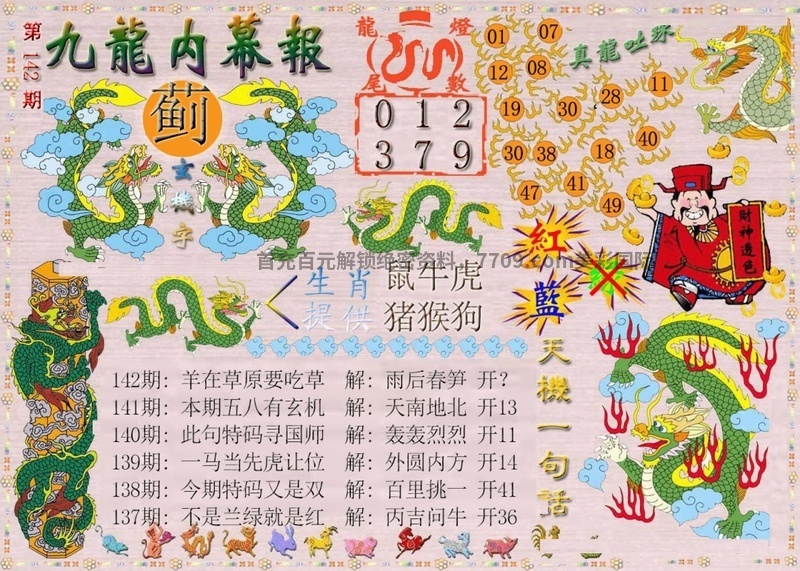 第142期
九龍内幕報
蓟
玄機字
龍燈
尾數
0 1 2
3 7 9
真龍吐珠
01 07
12 08
19 30 28 11
30 38 18 40
47 41 49
財神透色
紅
藍
首充百元解锁绝密资料：7709.com
生肖
提供
鼠牛虎
猪猴狗
天機一句話
142期: 羊在草原要吃草 解: 雨后春笋 开?
141期: 本期五八有玄机 解: 天南地北 开13
140期: 此句特码寻国师 解: 轰轰烈烈 开11
139期: 一马当先虎让位 解: 外圆内方 开14
138期: 今期特码又是双 解: 百里挑一 开41
137期: 不是兰绿就是红 解: 丙吉问牛 开36